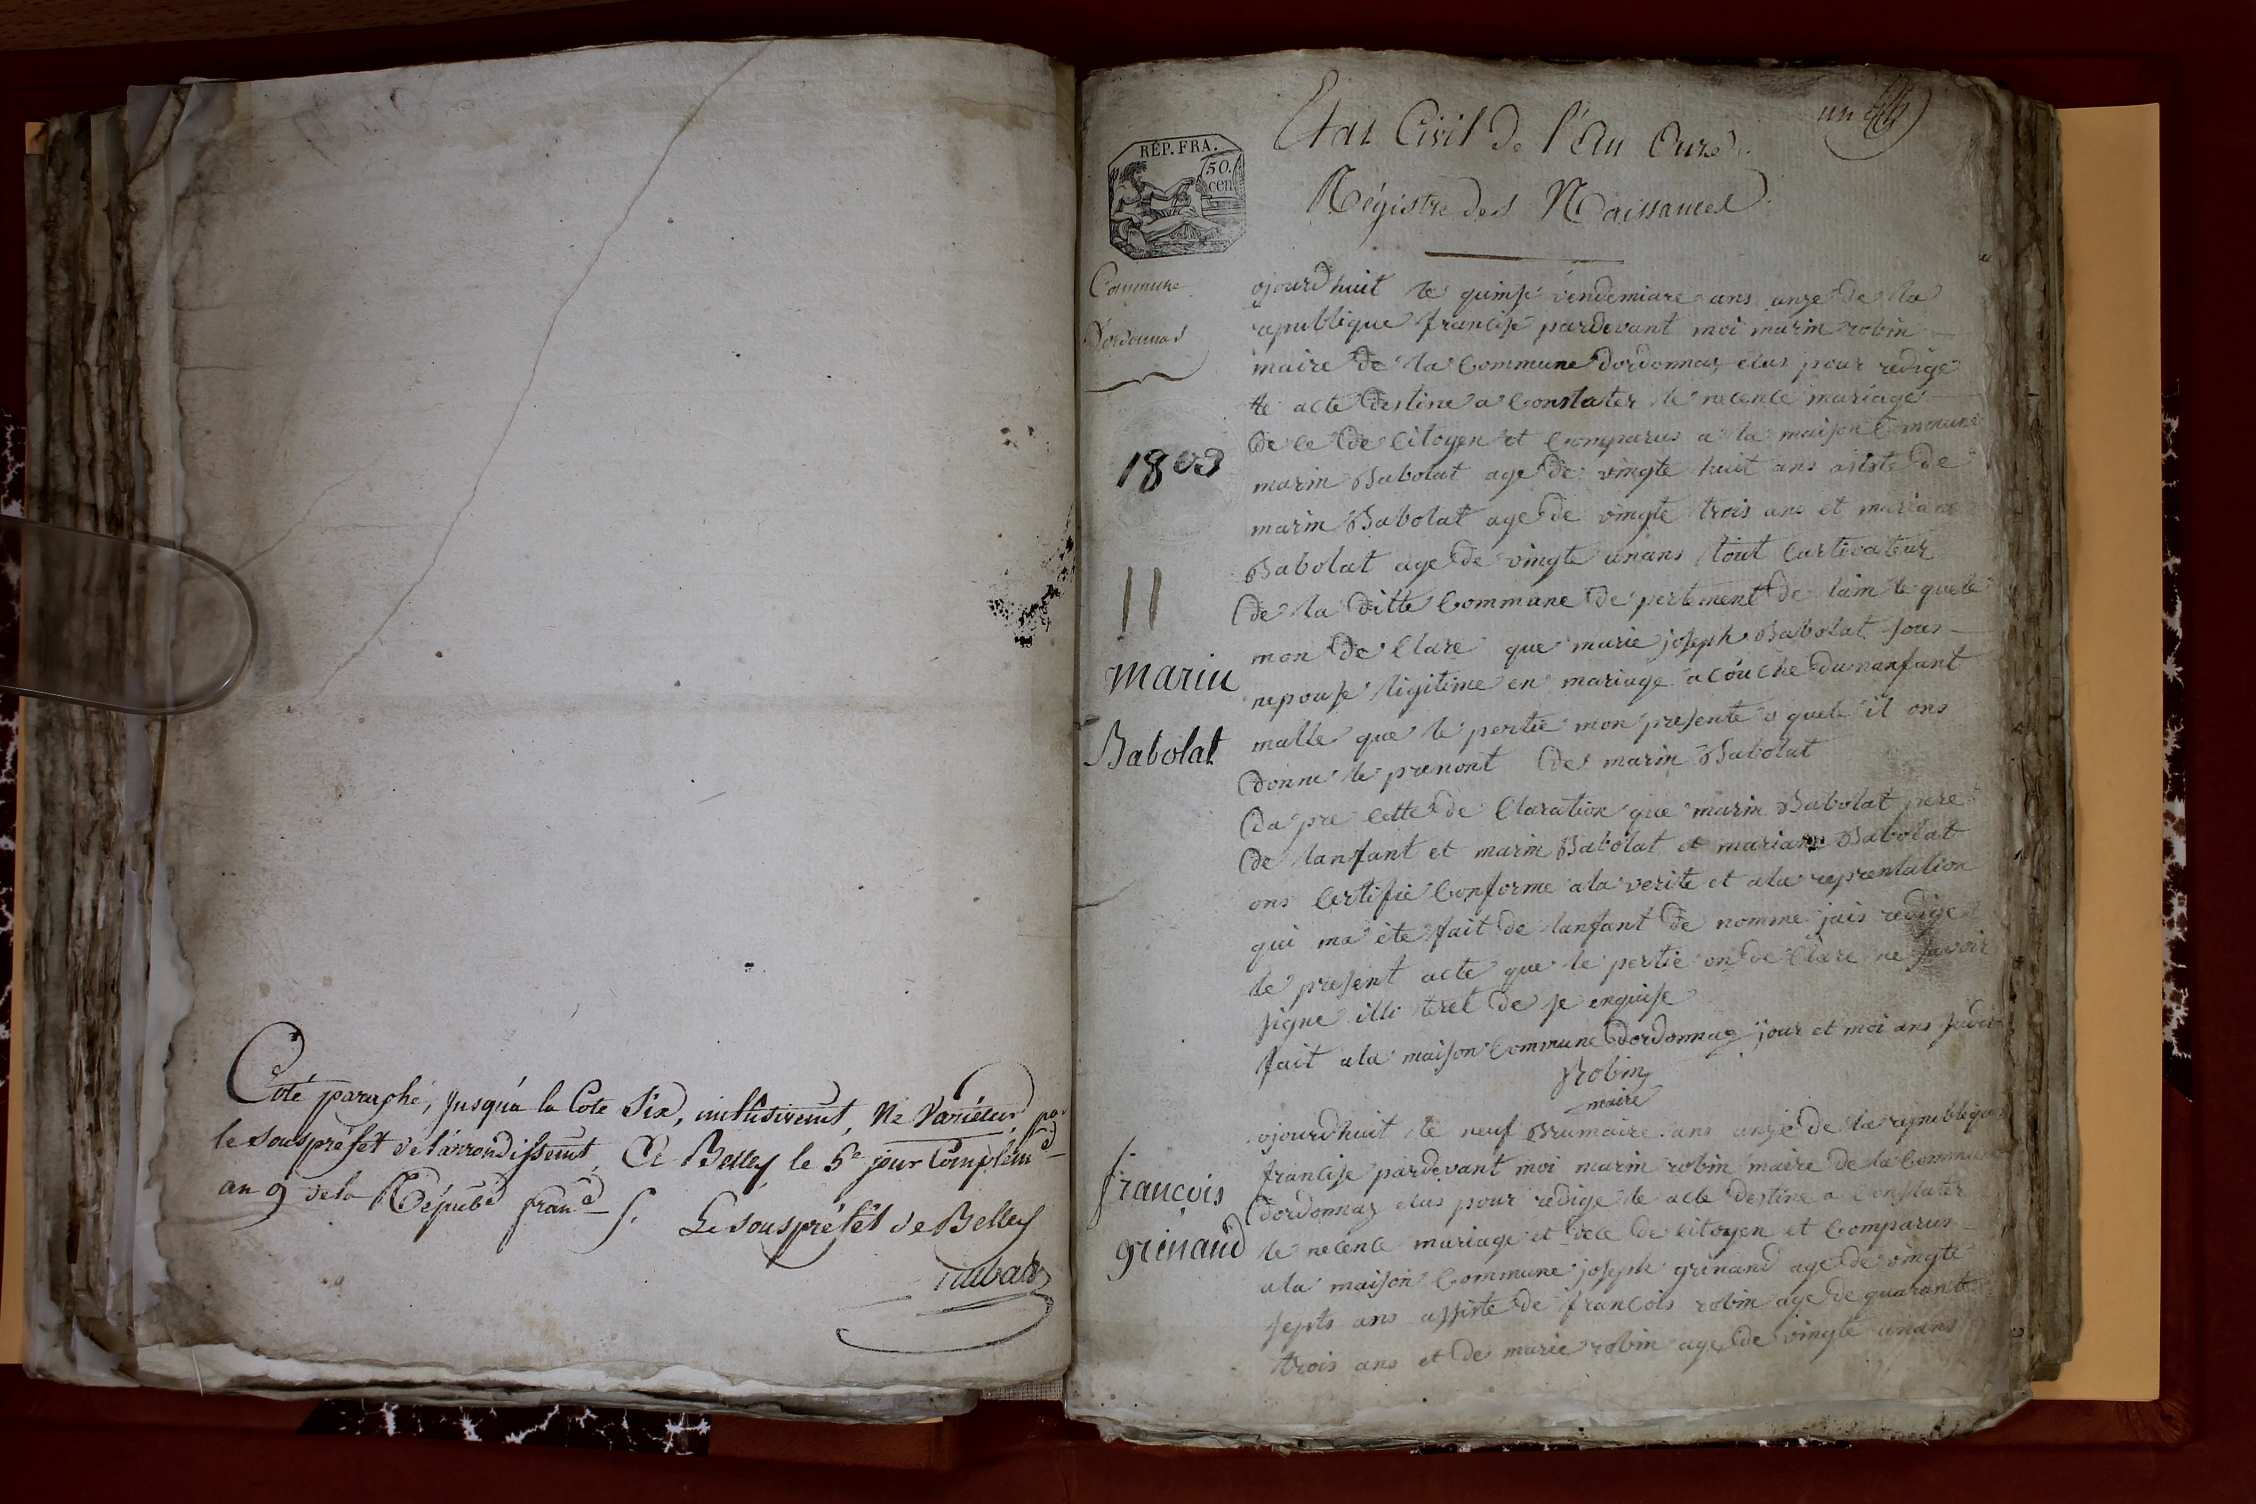 Coté paraphé, jusqu'à la Cote Six, inclusivement, Ne Varietur, par
le souspréfet de l'arrondissement, A Belley le 5e jour Complém
an 9 de la Républ franc
Le souspréfet de Belley
un
Etat Civil de l'An Onze
Régistre des Naissances
RÉP. FRA.
50.
cen
Commune
D'ordonnas
1803
11
marin
Babolat
ojourdhuit le quinse vendemiare ans onze de la
republique francise pardevant moi marin robin
maire de la Commune dordonnaz elus pour redige
le acte destine a Constater le necence mariage
de ce de Citoyen et Comparus a la maison Commune
marin Babolat age de vingte huit ans asiste de
marin Babolat age de vingte trois ans et mariane
Babolat age de vingte unans tout Cartivateur
de la ditte Commune de pertement de lain le quele
mon de Clare que marie joseph Babolat sous
nepouse ligitime en mariage a couche dunanfant
malle que le pertie mon presente o quele il ons
donne le prenont de marin Babolat
da pre cette de Claration que marin Babolat pere
de lanfant et marin Babolat et mariane Babolat
ons Certifie Conforme a la verite et a la reprentation
qui ma ete fait de lanfant de nomme jais redige
le present acte que le pertie on de Clare ne savoir
signe illi terel de se enquise
fait a la maison Commune dordonnaz jour et moi ans
Robin
maire
françois
grinand
ojourdhuit le neuf Brumaire ans onze de la republique
francise pardevant moi marin robin maire de la Commune
dordonnaz elus pour redige le acte destine a Constater
le necence mariage et dece de citoyen et Comparus
a la maison Commune joseph grinand age de vingte
septs ans assiste de francois robin age de quarante
trois ans et de marie robin age de vingte unans